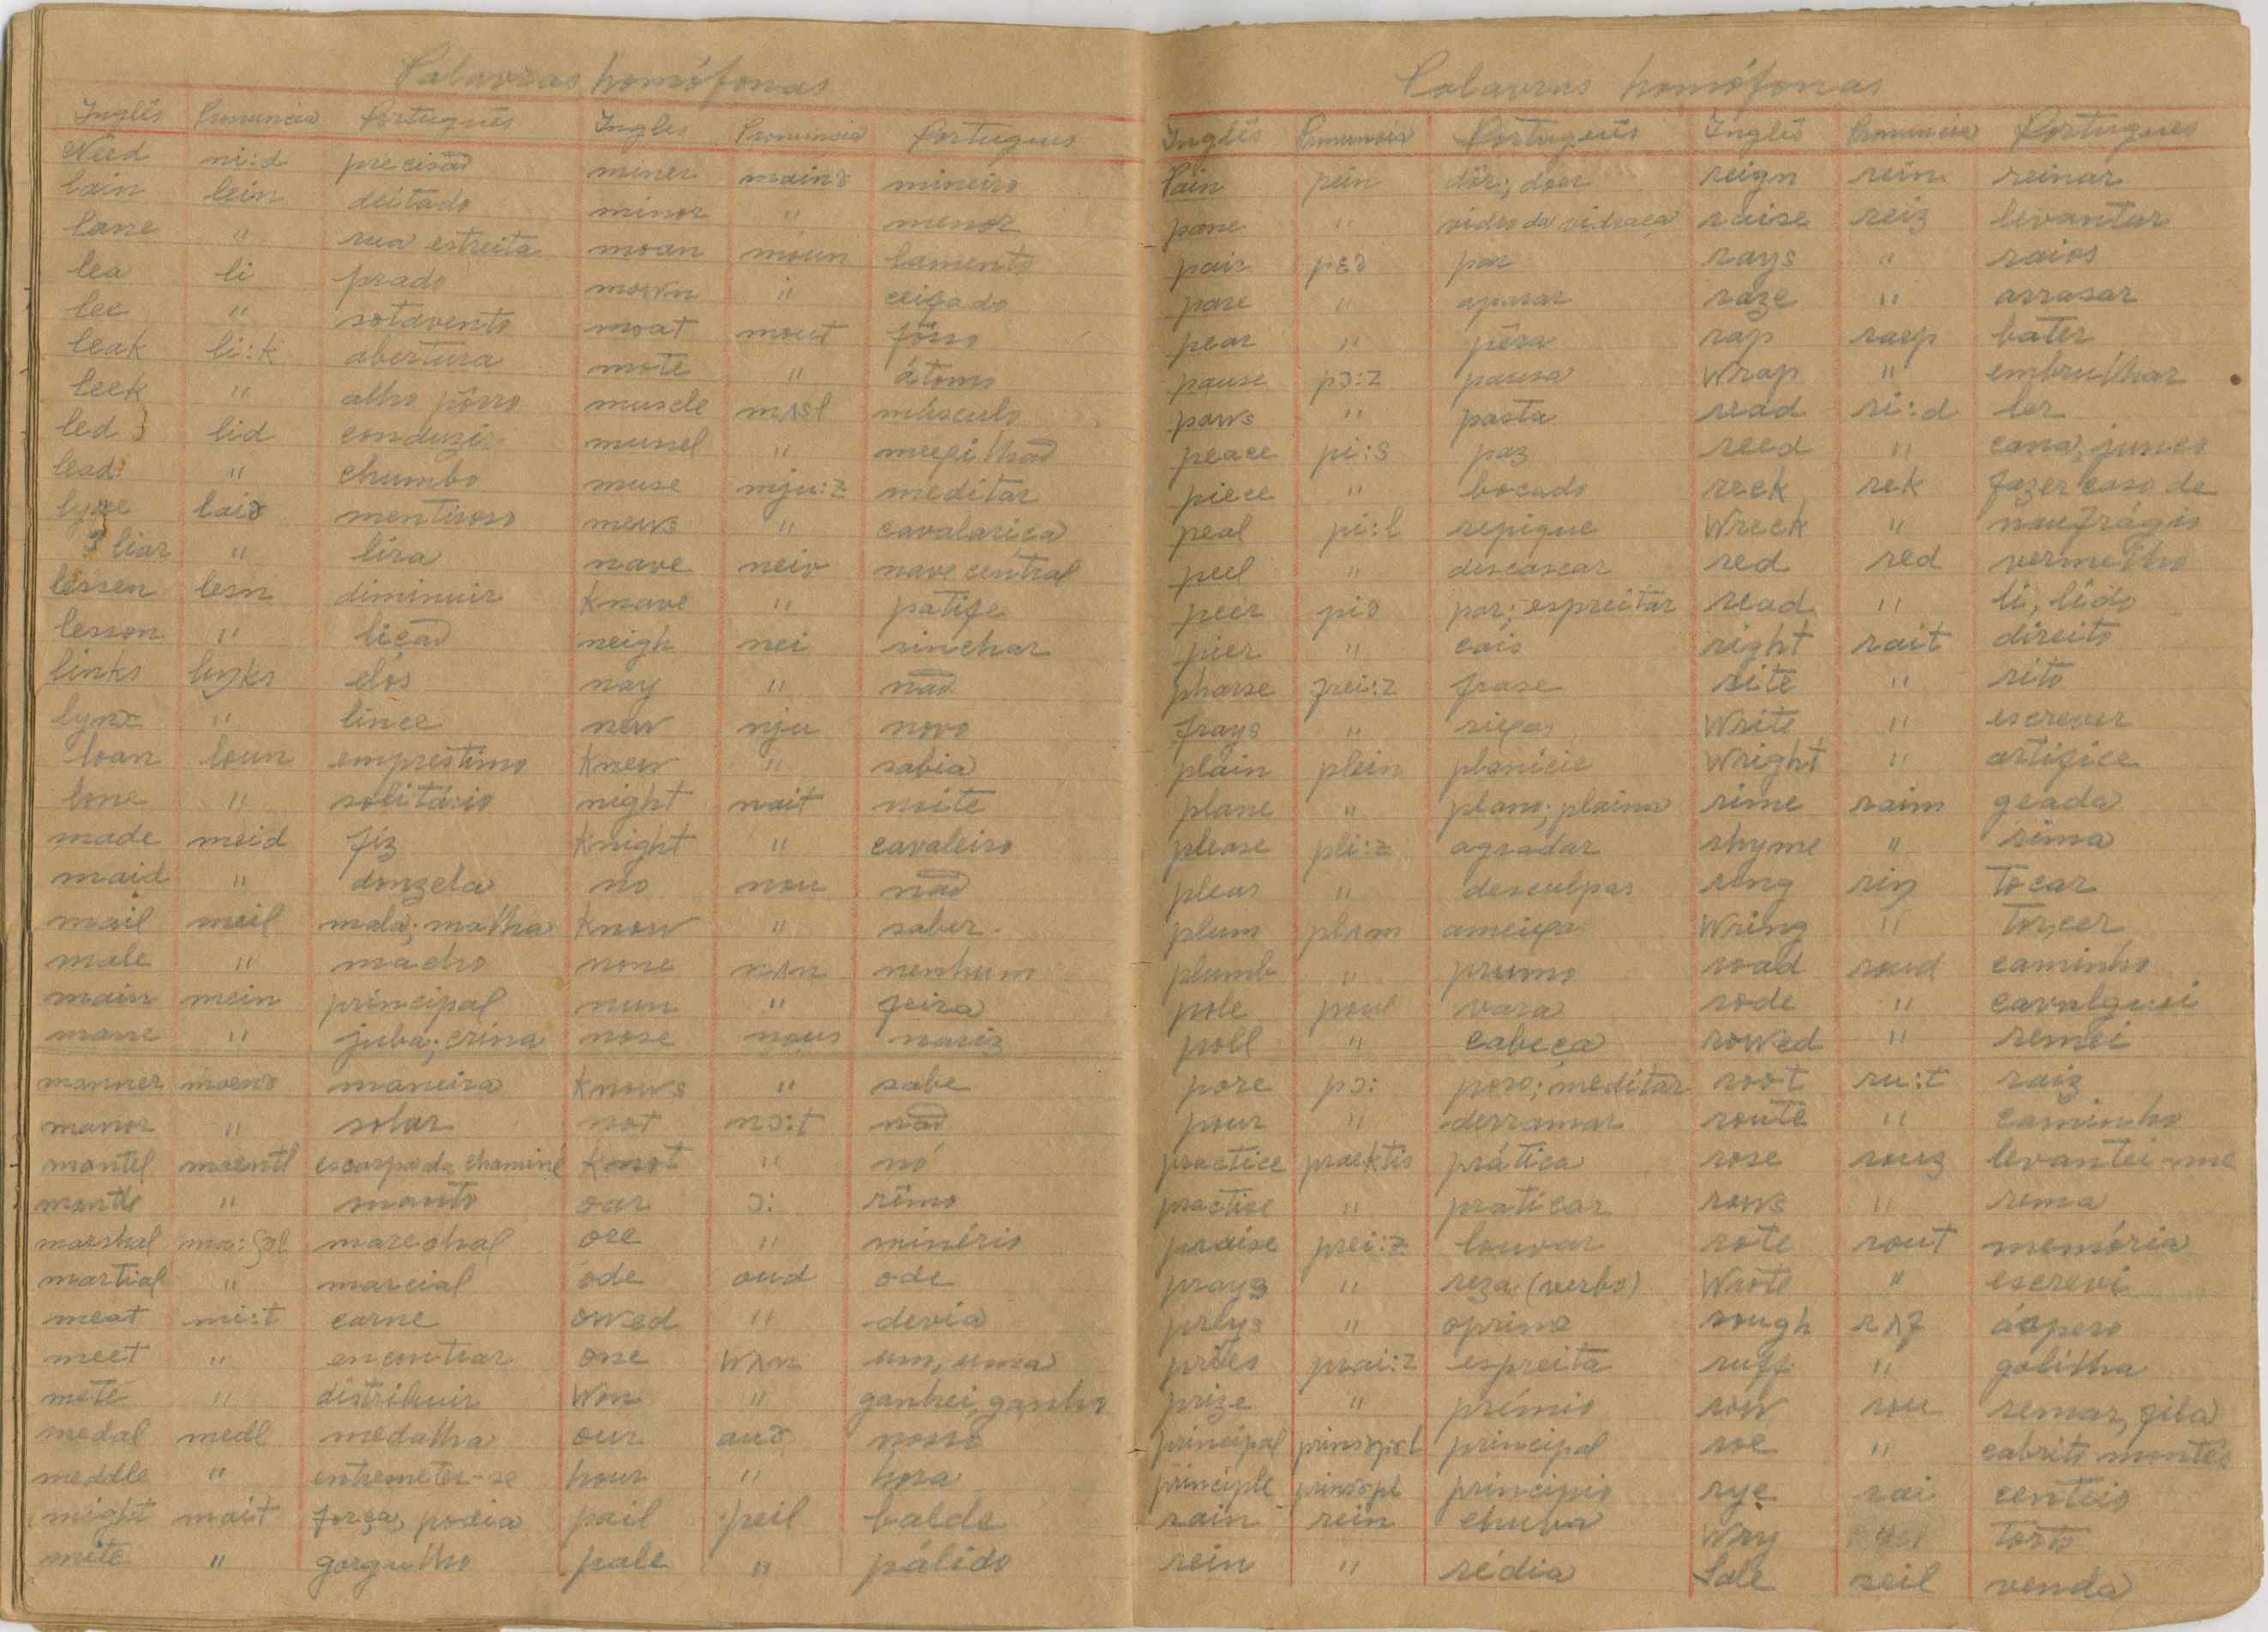 Palavras homófonas
Inglês Pronuncia Português Ingles Pronuncia Portugues
Need ni:d precisão miner mainə mineiro
lain lein deitado minor " menor
lane " rua estreita moan moun lamento
lea li prado mown " ceifado
lee " sotavento moat mout fôsso
leak li:k abertura mote " átomo
leek " alho pôrro muscle mʌsl músculo
led } lid conduzir mussel " mexilhão
lead " chumbo muse mju:z meditar
lyre laiə mentiroso mews " cavalariça
} liar " lira nave neiv nave central
lessen lesn diminuir Knave " patife
lesson " lição neigh nei rinchar
links liŋks elos nay " não
lynx " lince new nju novo
loan loun emprestimo Knew " sabia
lone " solitário night nait noite
made meid fiz Knight " cavaleiro
maid " donzela no nou não
mail meil mala; malha Know " saber
male " macho none nʌn nenhum
main mein principal nun " feira
mane " juba; crina nose nous nariz
manner maenə maneira Knows " sabe
manor " solar not nɔ:t não
mantel maentl escarpa da chaminé Knot " nó
mantle " manto oar ɔ: rêmo
marshal ma:ʃəl marechal ore " minério
martial " marcial ode oud ode
meat mi:t carne owed " devia
meet " encontrar one wʌn um, uma
mete " distribuir Won " ganhei, ganho
medal medl medalha our auə nosso
meddle " entremeter-se hour " hora
might mait força, podia pail peil balde
mite " gorgulho pale " pálido
Palavras homófonas
Inglês Pronuncia Português Inglês Pronuncia Portugues
Pain pein dôr; doer reign rein reinar
pane " vidro da vidraça raise reiz levantar
pair pɛə par rays " raios
pare " aparar raze " arrasar
pear " pêra rap raep bater
pause pɔ:z pausa Wrap " embrulhar
paws " pasta read ri:d ler
peace pi:s paz reed " cana, junco
piece " bocado reck rek fazer caso de
peal pi:l repique Wreck " naufrágio
peel " descascar red red vermelho
peer piə par; espreitar read " li, lido
pier " cais right rait direito
pharse frei:z frase rite " rito
frays " rixas Write " escrever
plain plein planicie Wright " artifice
plane " plano; plaina rime raim geada
please pli:z agradar rhyme " rima
pleas " desculpas ring riŋ tocar
plum plʌm ameixa Wring " torcer
plumb " prumo road roud caminho
pole poul vara rode " cavalguei
poll " cabeça rowed " remei
pore pɔ: poro; meditar root ru:t raiz
pour " derramar route " caminho
practice praektis prática rose rouz levantei-me
practise " praticar rows " rema
praise prei:z louvar rote rout memória
prays " reza (verbo) Wrote " escrevi
preys " oprime rough rʌf áspero
pries prai:z espreita ruff " golilha
prize " prémio row rou remar, fila
principal prinsəpəl principal roe " cabrito montês
principle prinsəpl principio rye rai centeio
rain rein chuva Wry " torto
rein " rédia Sale seil venda